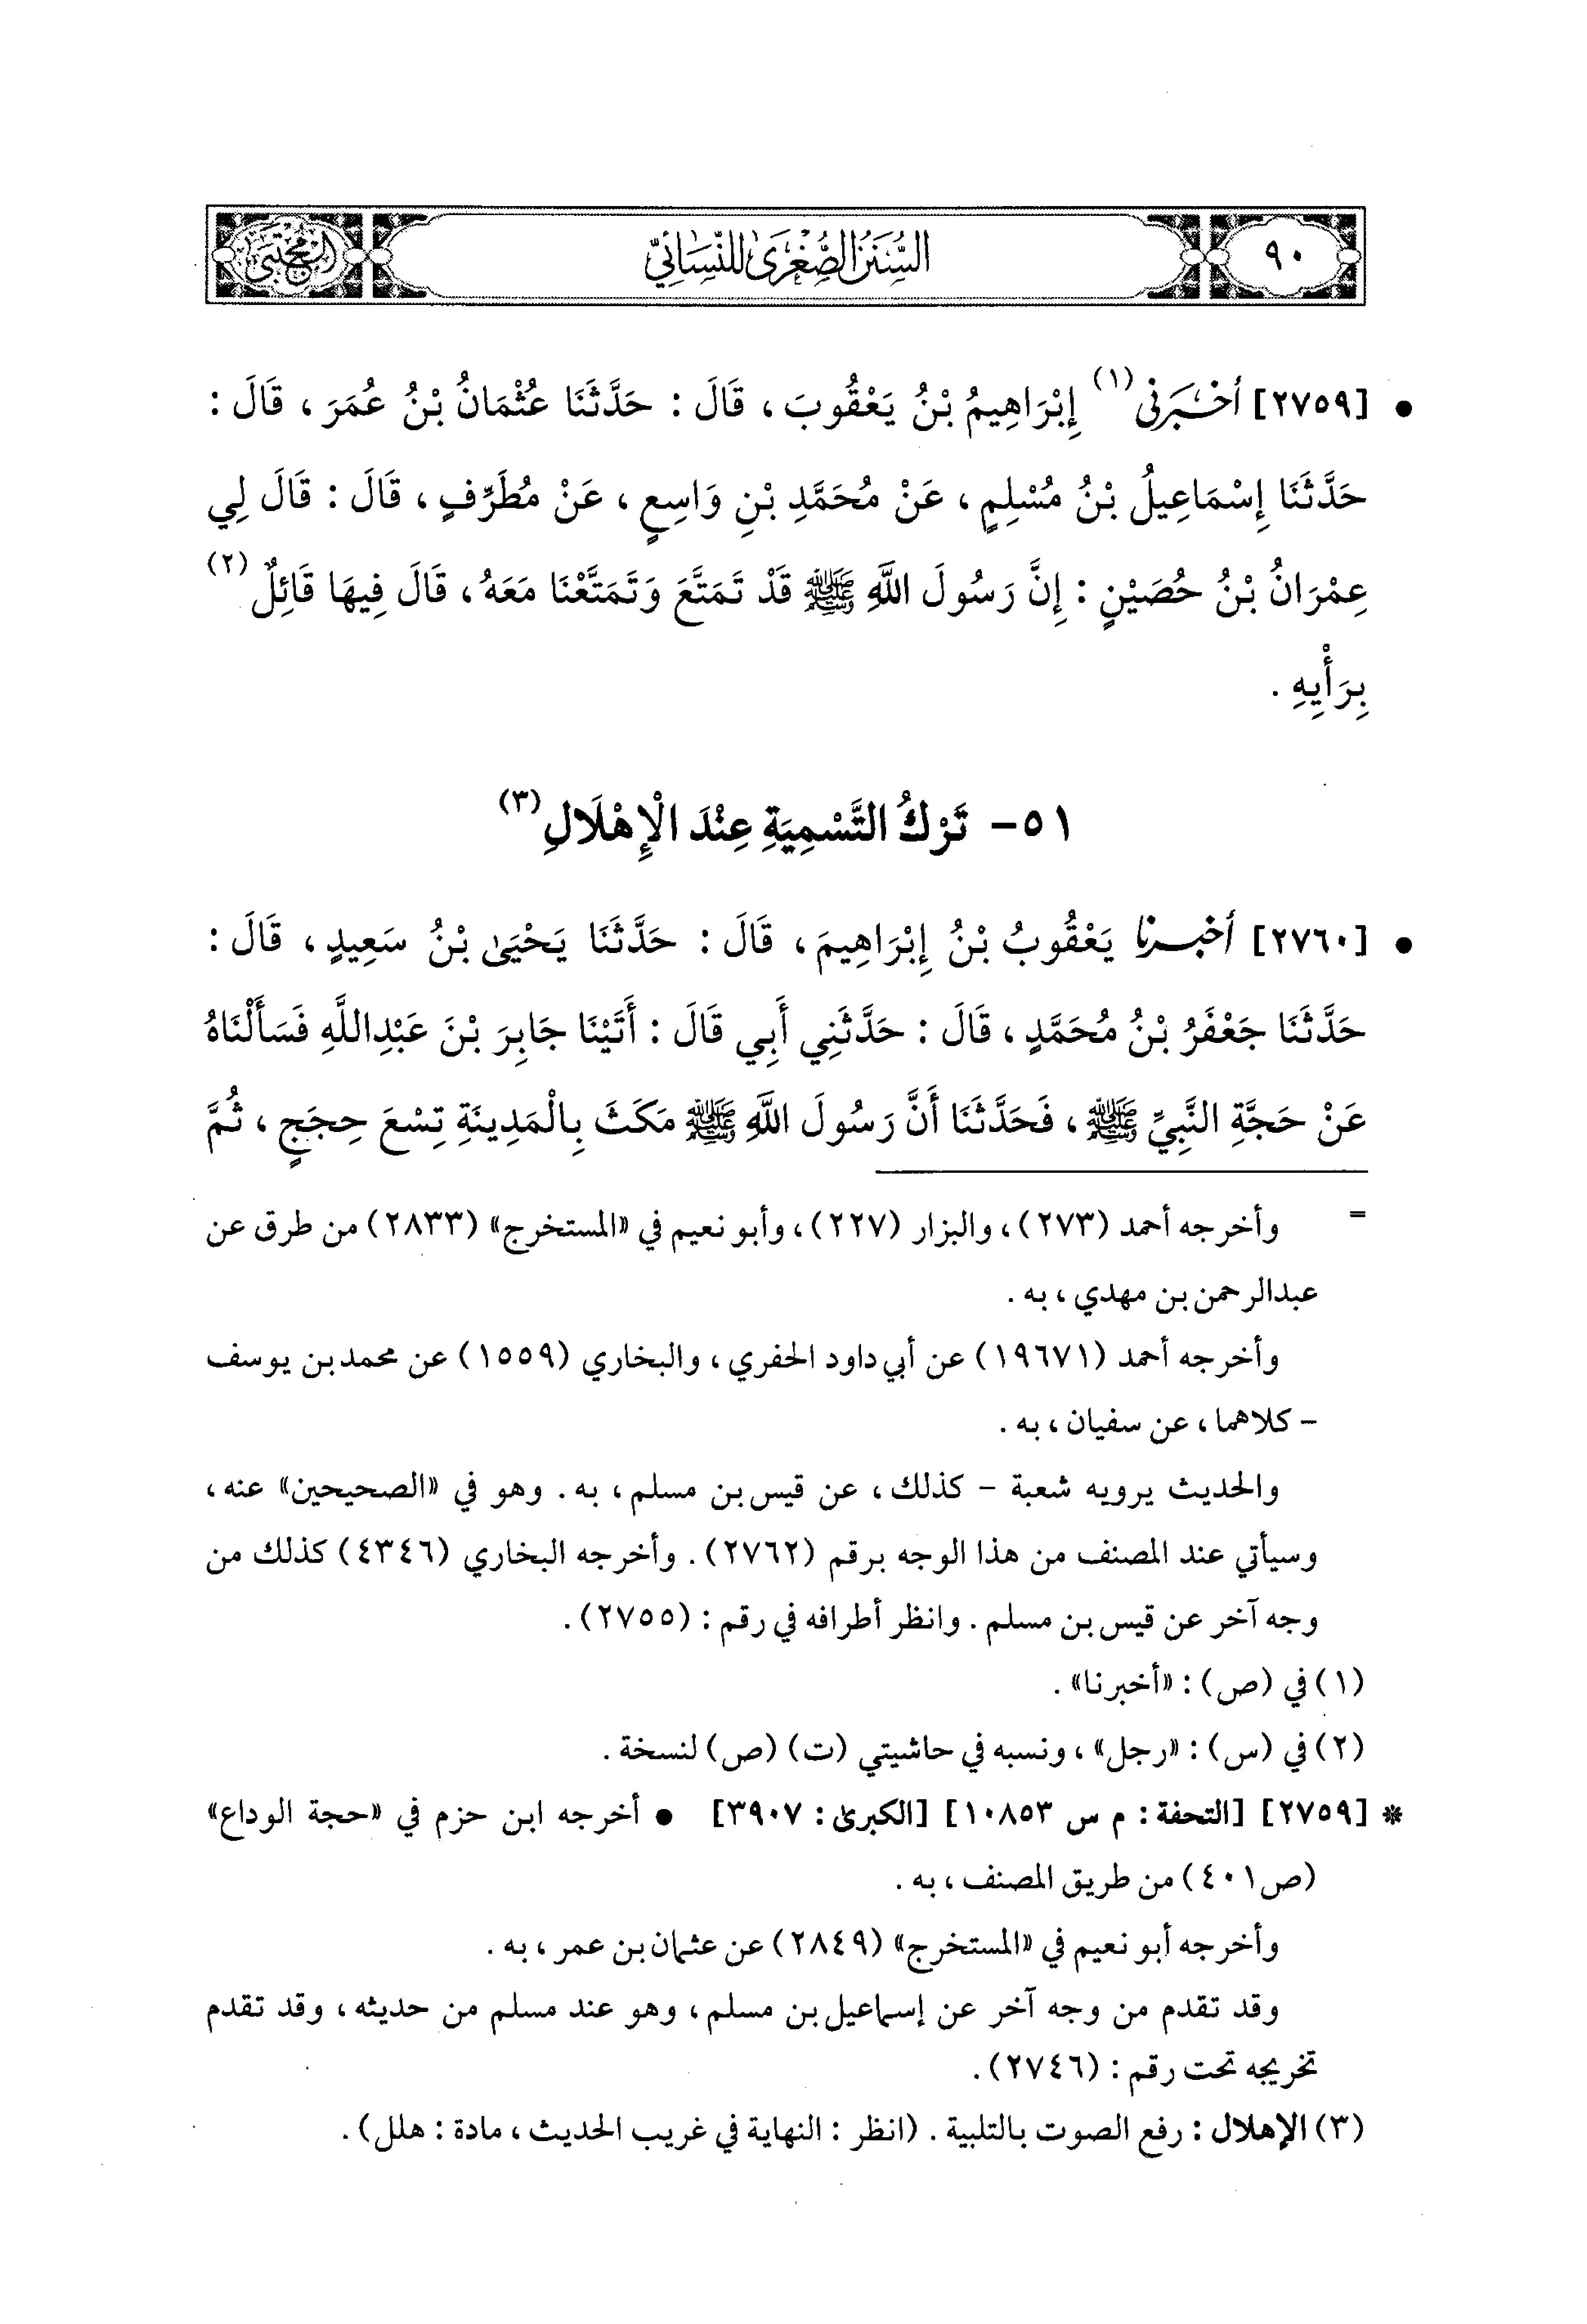 ٩٠
السُّنَنُ الصُّغْرَىٰ لِلنَّسَائِيِّ
المجتبى
• [٢٧٥٩] أَخْبَرَنِي (١) إِبْرَاهِيمُ بْنُ يَعْقُوبَ ، قَالَ : حَدَّثَنَا عُثْمَانُ بْنُ عُمَرَ ، قَالَ :
حَدَّثَنَا إِسْمَاعِيلُ بْنُ مُسْلِمٍ ، عَنْ مُحَمَّدِ بْنِ وَاسِعٍ ، عَنْ مُطَرِّفٍ ، قَالَ : قَالَ لِي
عِمْرَانُ بْنُ حُصَيْنٍ : إِنَّ رَسُولَ اللَّهِ ﷺ قَدْ تَمَتَّعَ وَتَمَتَّعْنَا مَعَهُ ، قَالَ فِيهَا قَائِلٌ (٢)
بِرَأْيِهِ .
٥١- تَرْكُ التَّسْمِيَةِ عِنْدَ الْإِهْلَالِ (٣)
• [٢٧٦٠] أخبرنا يَعْقُوبُ بْنُ إِبْرَاهِيمَ ، قَالَ : حَدَّثَنَا يَحْيَىٰ بْنُ سَعِيدٍ ، قَالَ :
حَدَّثَنَا جَعْفَرُ بْنُ مُحَمَّدٍ ، قَالَ : حَدَّثَنِي أَبِي قَالَ : أَتَيْنَا جَابِرَ بْنَ عَبْدِاللَّهِ فَسَأَلْنَاهُ
عَنْ حَجَّةِ النَّبِيِّ ﷺ ، فَحَدَّثَنَا أَنَّ رَسُولَ اللَّهِ ﷺ مَكَثَ بِالْمَدِينَةِ تِسْعَ حِجَجٍ ، ثُمَّ
= وأخرجه أحمد (٢٧٣) ، والبزار (٢٢٧) ، وأبو نعيم في «المستخرج» (٢٨٣٣) من طرق عن
عبدالرحمن بن مهدي ، به .
وأخرجه أحمد (١٩٦٧١) عن أبي داود الحفري ، والبخاري (١٥٥٩) عن محمد بن يوسف
- كلاهما ، عن سفيان ، به .
والحديث يرويه شعبة - كذلك ، عن قيس بن مسلم ، به . وهو في «الصحيحين» عنه ،
وسيأتي عند المصنف من هذا الوجه برقم (٢٧٦٢) . وأخرجه البخاري (٤٣٤٦) كذلك من
وجه آخر عن قيس بن مسلم . وانظر أطرافه في رقم : (٢٧٥٥) .
(١) في (ص) : «أخبرنا» .
(٢) في (س) : «رجل» ، ونسبه في حاشيتي (ت) (ص) لنسخة .
* [٢٧٥٩] [التحفة : م س ١٠٨٥٣] [الكبرىٰ : ٣٩٠٧] • أخرجه ابن حزم في «حجة الوداع»
(ص٤٠١) من طريق المصنف ، به .
وأخرجه أبو نعيم في «المستخرج» (٢٨٤٩) عن عثمان بن عمر ، به .
وقد تقدم من وجه آخر عن إسماعيل بن مسلم ، وهو عند مسلم من حديثه ، وقد تقدم
تخريجه تحت رقم : (٢٧٤٦) .
(٣) الإهلال : رفع الصوت بالتلبية . (انظر : النهاية في غريب الحديث ، مادة : هلل) .